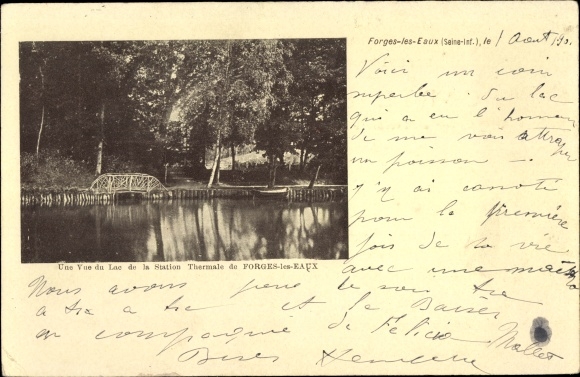 Forges-les-Eaux (Seine-Inf.), le 1 Août 190
Voici un coin
superbe du lac
qui a eu l'honneur
de me voir attraper
un poisson —
j'y ai canoté
pour la première
fois de la vie
avec une
Une Vue du Lac de la Station Thermale de FORGES-les-EAUX
Nous avons le soir
a tra a tra et la Baiser
en compagnie de Félicia
Bises